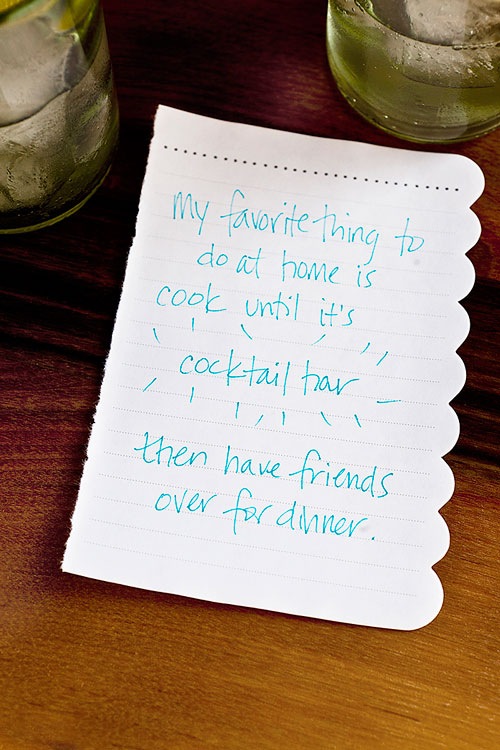 My favorite thing to
do at home is
cook until it's
cocktail hour
then have friends
over for dinner.